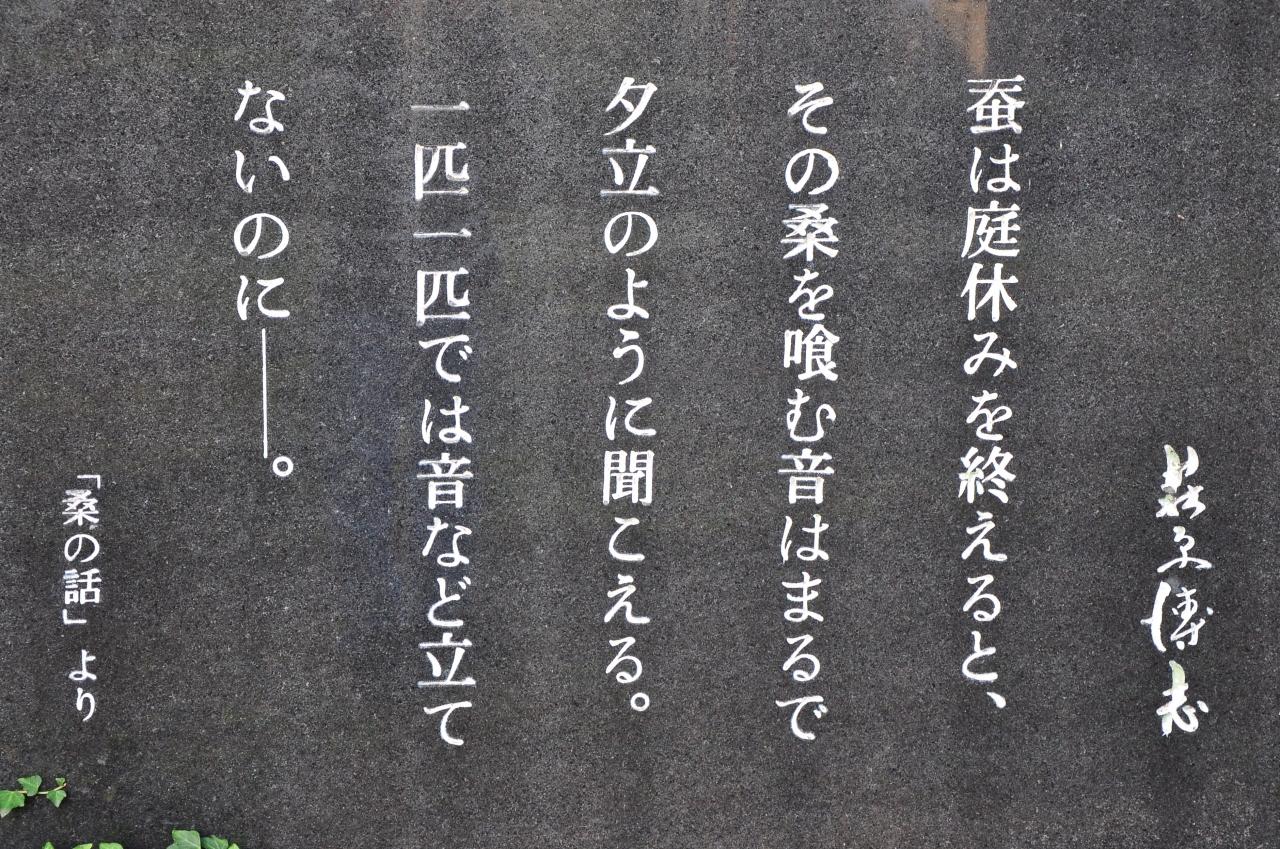 萩原博志
蚕は庭休みを終えると、
その桑を喰む音はまるで
夕立のように聞こえる。
一匹一匹では音など立て
ないのに――。
「桑の話」より